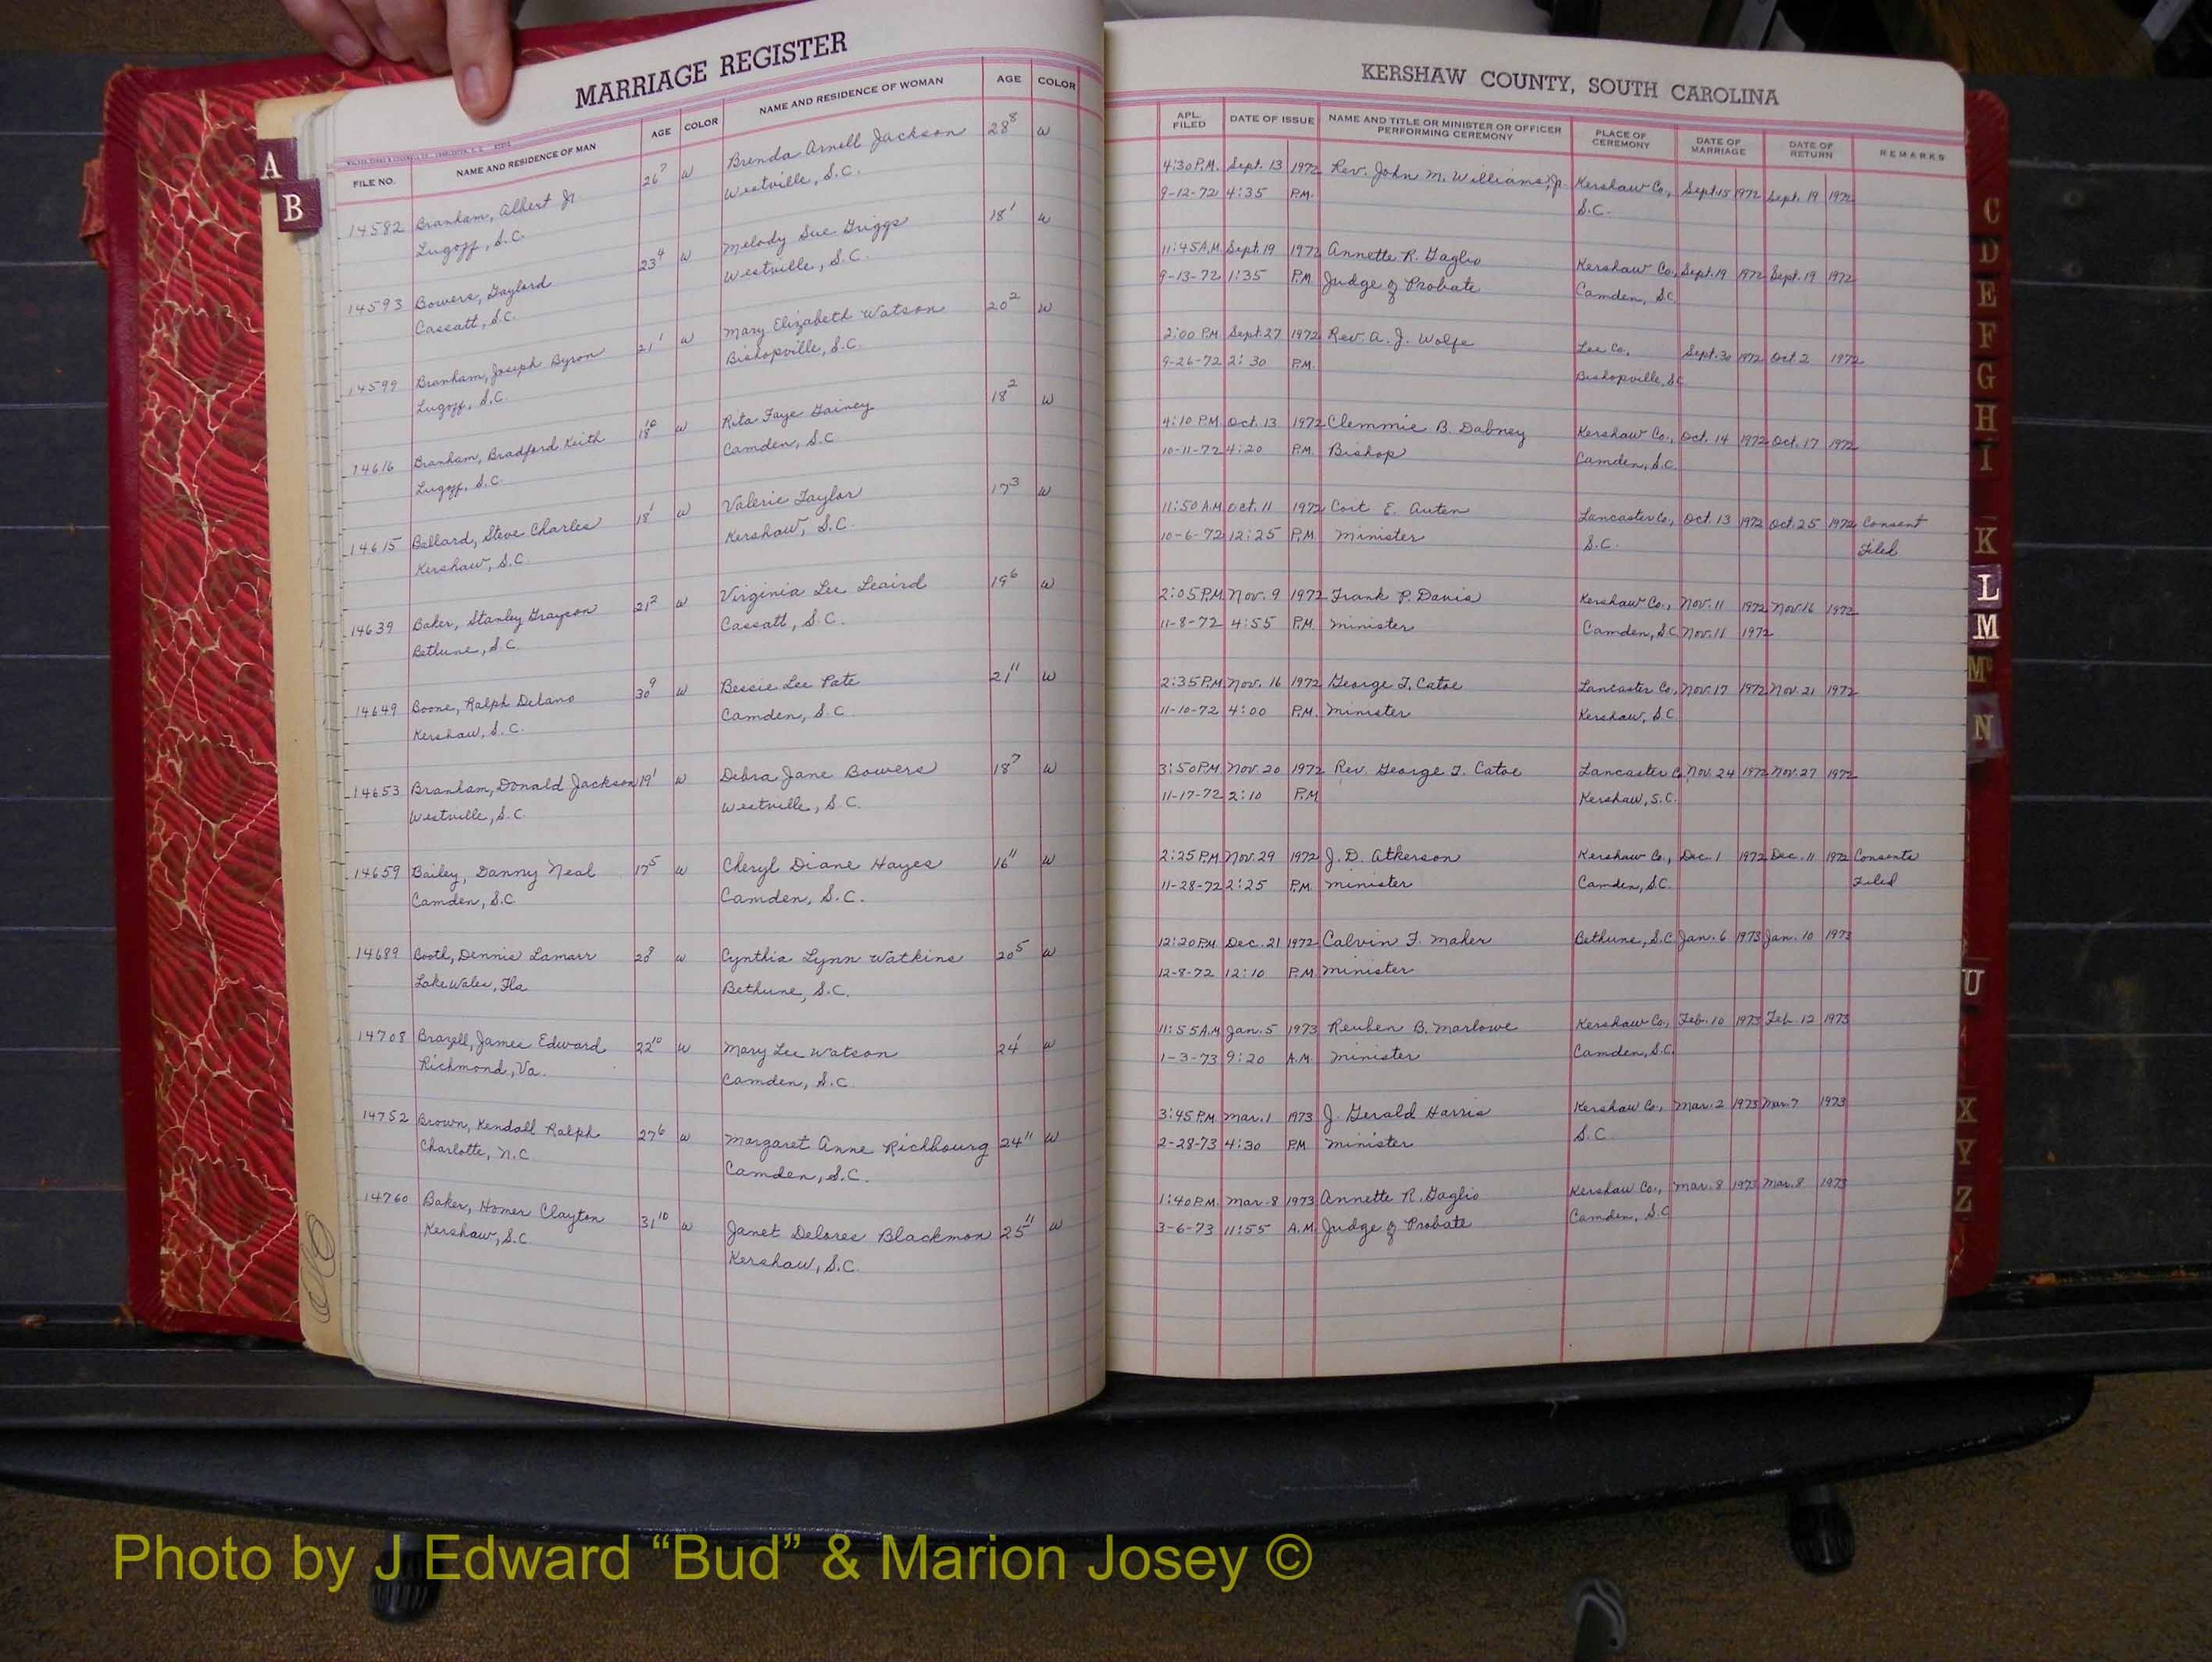 MARRIAGE REGISTER
FILE NO. NAME AND RESIDENCE OF MAN AGE COLOR NAME AND RESIDENCE OF WOMAN AGE COLOR
14582 Branham, Albert Jr. 26⁷ W Brenda Arnell Jackson 28⁸ W
Lugoff, S.C. Westville, S.C.
14593 Bowers, Gaylord 23⁴ W Melody Sue Griggs 18¹ W
Cassatt, S.C. Westville, S.C.
14599 Branham, Joseph Byron 21¹ W Mary Elizabeth Watson 20² W
Lugoff, S.C. Bishopville, S.C.
14616 Branham, Bradford Keith 18¹⁰ W Rita Faye Gainey 18² W
Lugoff, S.C. Camden, S.C.
14615 Ballard, Steve Charles 18¹ W Valerie Taylor 17³ W
Kershaw, S.C. Kershaw, S.C.
14639 Baker, Stanley Grayson 21² W Virginia Lee Leaird 19⁶ W
Bethune, S.C. Cassatt, S.C.
14649 Boone, Ralph Delano 30⁹ W Bessie Lee Pate 21¹¹ W
Kershaw, S.C. Camden, S.C.
14653 Branham, Donald Jackson 19¹ W Debra Jane Bowers 18⁷ W
Westville, S.C. Westville, S.C.
14659 Bailey, Danny Neal 17⁵ W Cheryl Diane Hayes 16¹¹ W
Camden, S.C. Camden, S.C.
14689 Booth, Dennis Lamarr W Cynthia Lynn Watkins 20⁵ W
Lake Wales, Fla. Bethune, S.C.
14708 Brazell, James Edward 22¹⁰ W Mary Lee Watson 24¹ W
Richmond, Va. Camden, S.C.
14752 Brown, Kendall Ralph 27⁶ W Margaret Anne Richbourg 24¹¹ W
Charlotte, N.C. Camden, S.C.
14760 Baker, Homer Clayton 31¹⁰ W Janet Delores Blackmon 25¹¹ W
Kershaw, S.C. Kershaw, S.C.
A
B
KERSHAW COUNTY, SOUTH CAROLINA
APL. FILED DATE OF ISSUE NAME AND TITLE OR MINISTER OR OFFICER PERFORMING CEREMONY PLACE OF CEREMONY DATE OF MARRIAGE DATE OF RETURN REMARKS
4:30 P.M. Sept. 13 1972 Rev. John M. Williams, Jr. Kershaw Co., Sept. 15 1972 Sept. 19 1972
9-12-72 4:35 P.M. S.C.
11:45 A.M. Sept. 19 1972 Annette R. Gaglio Kershaw Co., Sept. 19 1972 Sept. 19 1972
9-13-72 1:35 P.M. Judge of Probate Camden, S.C.
2:00 P.M. Sept. 27 1972 Rev. A. J. Wolfe Lee Co., Sept. 30 1972 Oct. 2 1972
9-26-72 2:30 P.M. Bishopville, S.C.
4:10 P.M. Oct. 13 1972 Clemmie B. Dabney Kershaw Co., Oct. 14 1972 Oct. 17 1972
10-11-72 4:20 P.M. Bishop Camden, S.C.
11:50 A.M. Oct. 11 1972 Cort E. Auten Lancaster Co., Oct. 13 1972 Oct. 25 1972 Consent
10-6-72 12:25 P.M. Minister S.C. Filed
2:05 P.M. Nov. 9 1972 Frank P. Davis Kershaw Co., Nov. 11 1972 Nov. 16 1972
11-8-72 4:55 P.M. Minister Camden, S.C. Nov. 11 1972
2:35 P.M. Nov. 16 1972 George T. Catoe Lancaster Co., Nov. 17 1972 Nov. 21 1972
11-10-72 4:00 P.M. Minister Kershaw, S.C.
3:50 P.M. Nov. 20 1972 Rev. George T. Catoe Lancaster C. Nov. 24 1972 Nov. 27 1972
11-17-72 2:10 P.M. Kershaw, S.C.
2:25 P.M. Nov. 29 1972 J. D. Atkerson Kershaw Co., Dec. 1 1972 Dec. 11 1972 Consents
11-28-72 2:25 P.M. Minister Camden, S.C. Filed
12:20 P.M. Dec. 21 1972 Calvin F. Maher Bethune, S.C. Jan. 6 1973 Jan. 10 1973
12-8-72 12:10 P.M. Minister
11:55 A.M. Jan. 5 1973 Reuben B. Marlowe Kershaw Co., Feb. 10 1973 Feb. 12 1973
1-3-73 9:20 A.M. Minister Camden, S.C.
3:45 P.M. Mar. 1 1973 J. Gerald Harris Kershaw Co., Mar. 2 1973 Mar. 7 1973
2-28-73 4:30 P.M. Minister S.C.
1:40 P.M. Mar. 8 1973 Annette R. Gaglio Kershaw Co., Mar. 8 1973 Mar. 8 1973
3-6-73 11:55 A.M. Judge of Probate Camden, S.C.
C
D
E
F
G
H
I
K
L
M
Mc
N
U
X
Y
Z
Photo by J Edward “Bud” & Marion Josey ©